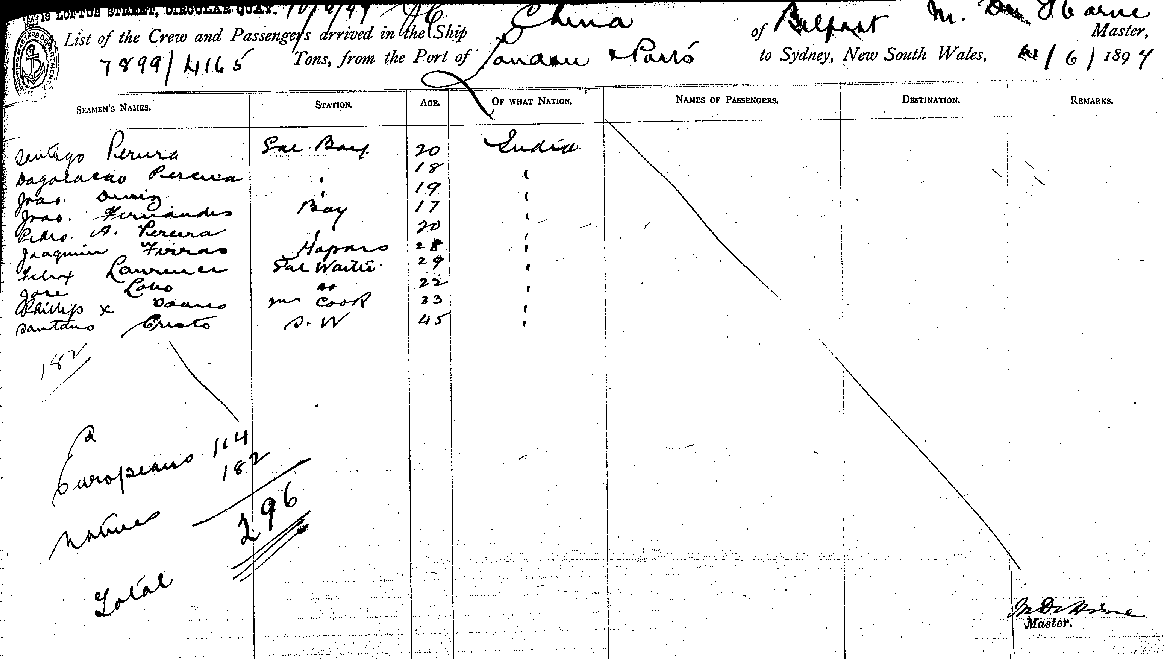 LOFTUS STREET, CIRCULAR QUAY. 10/6/97
List of the Crew and Passengers arrived in the Ship China of Belfast Master,
7899/4165 Tons, from the Port of London & Ports to Sydney, New South Wales, /6/1897
SEAMEN'S NAMES. STATION. AGE. OF WHAT NATION. NAMES OF PASSENGERS. DESTINATION. REMARKS.
Perura Bay 20 India
Pereira " 18 "
Joao. Diniz " 19 "
Joao. Fernandes Bay 17 "
Pedro. A. Pereira " 20 "
Joaquim 28 "
Felix Laurence 29 "
Jose Lobo do 22 "
Phillip x Soares Cook 33 "
Cristo S. W 45 "
182
Europeans 114
Natives 182
Total 296
Master.